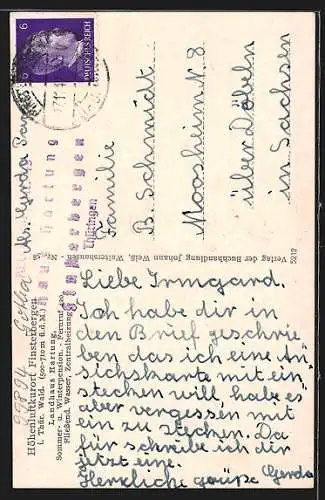 Liebe Irmgard.
Ich habe dir in
den Brief geschrie
ben das ich eine An
sichskarte mit ein
stecken will, habe es
aber vergessen mit
ein zu stecken. Da
für schreibe ich dir
jetzt eine.
Herkliche grüße Gerda
Familie
B. Schmidt
Moosheim N 8
über Döbeln
in Sachsen
Verlag der Buchhandlung Johann Weiß, Waltershausen
5212
Höhenluftkurort Finsterbergen
i. Thür. Wald. (500-710 m ü.d.M.)
Landhaus Hartung.
Sommer- u. Winterpension. - Fernruf 208,
Fließend. Wasser, Zentralheizung
Hartung
Finsterbergen
Thüringen
Abs. Gerda
DEUTSCHES REICH
6 6